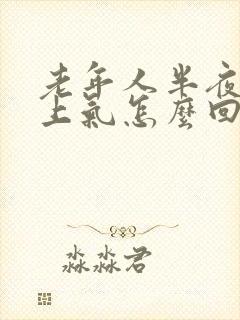 老年人半夜
上氣怎麼回
淼淼君